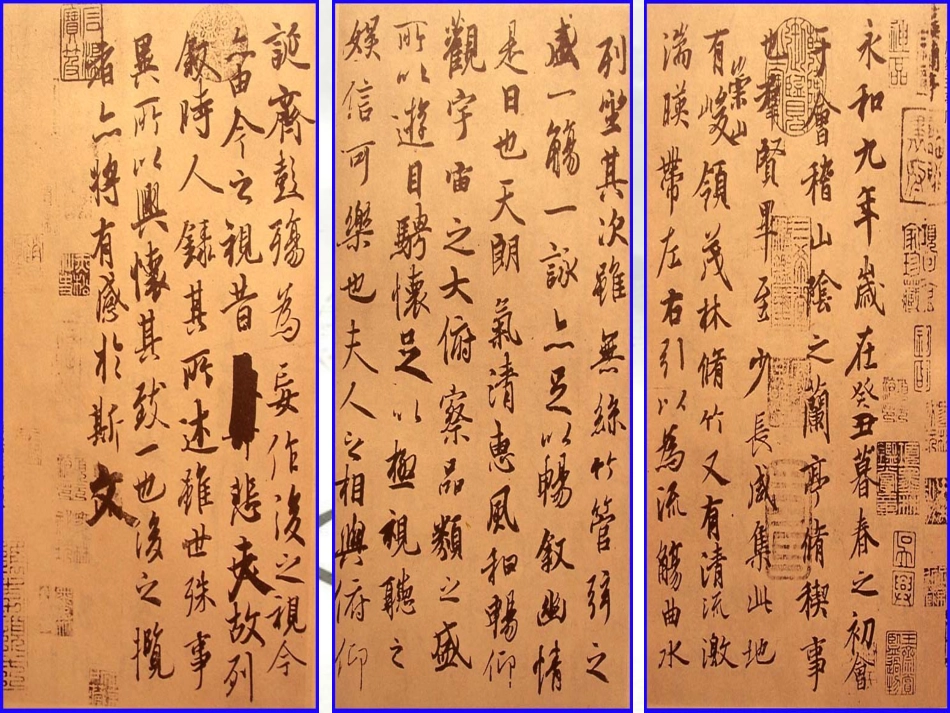 永和九年歲在癸丑暮春之初會
于會稽山陰之蘭亭脩稧事
也羣賢畢至少長咸集此地
有崇山峻領茂林脩竹又有清流激
湍暎帶左右引以為流觴曲水
列坐其次雖無絲竹管弦之
盛一觴一詠亦足以暢敘幽情
是日也天朗氣清惠風和暢仰
觀宇宙之大俯察品類之盛
所以遊目騁懷足以極視聽之
娛信可樂也夫人之相與俯仰
誕齊彭殤為妄作後之視今
亦由今之視昔悲夫故列
敘時人錄其所述雖世殊事
異所以興懷其致一也後之攬
者亦將有感於斯文